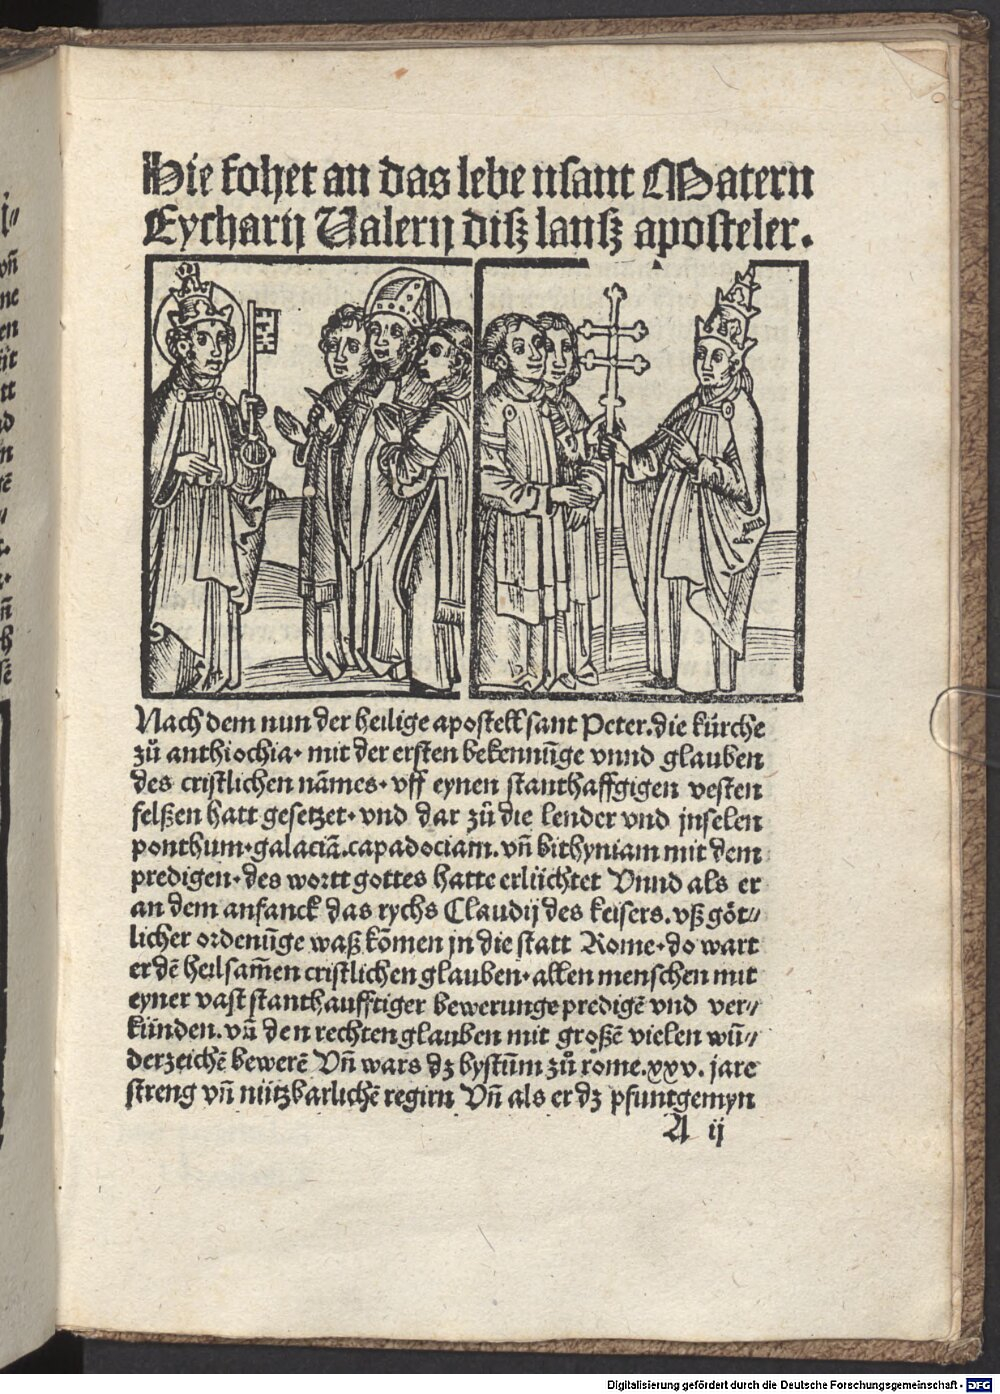 Hie fohet an das lebe nsant Matern
Eycharij Valerij disz lansz aposteler.
Nach dem nun der heilige apostell sant Peter. die kürche
zů anthiochia. mit der ersten bekennūge vnnd glauben
des cristlichen nāmes. vff eynen stanthaffgigen vesten
felßen hatt gesetzet. vnd dar zů die lender vnd jnselen
ponthum. galaciā. capadociam. vn̄ bithyniam mit dem
predigen. des wortt gottes hatte erlüchtet Vnnd als er
an dem anfanck das rychs Claudij des keisers. vß göt⸗
licher ordenūge waß kōmen jn die statt Rome. do wart
er dē heilsam̄en cristlichen glauben. allen menschen mit
eyner vast stanthaufftiger bewerunge predigē vnd ver⸗
künden. vn̄ den rechten glauben mit großē vielen wū⸗
derzeichē bewerē Vn̄ wars dz bystūm zů rome. xxv. jare
streng vn̄ nützbarlichē regirn Vn̄ als er dz pfuntgemyn
A ij
Digitalisierung gefördert durch die Deutsche Forschungsgemeinschaft - DFG